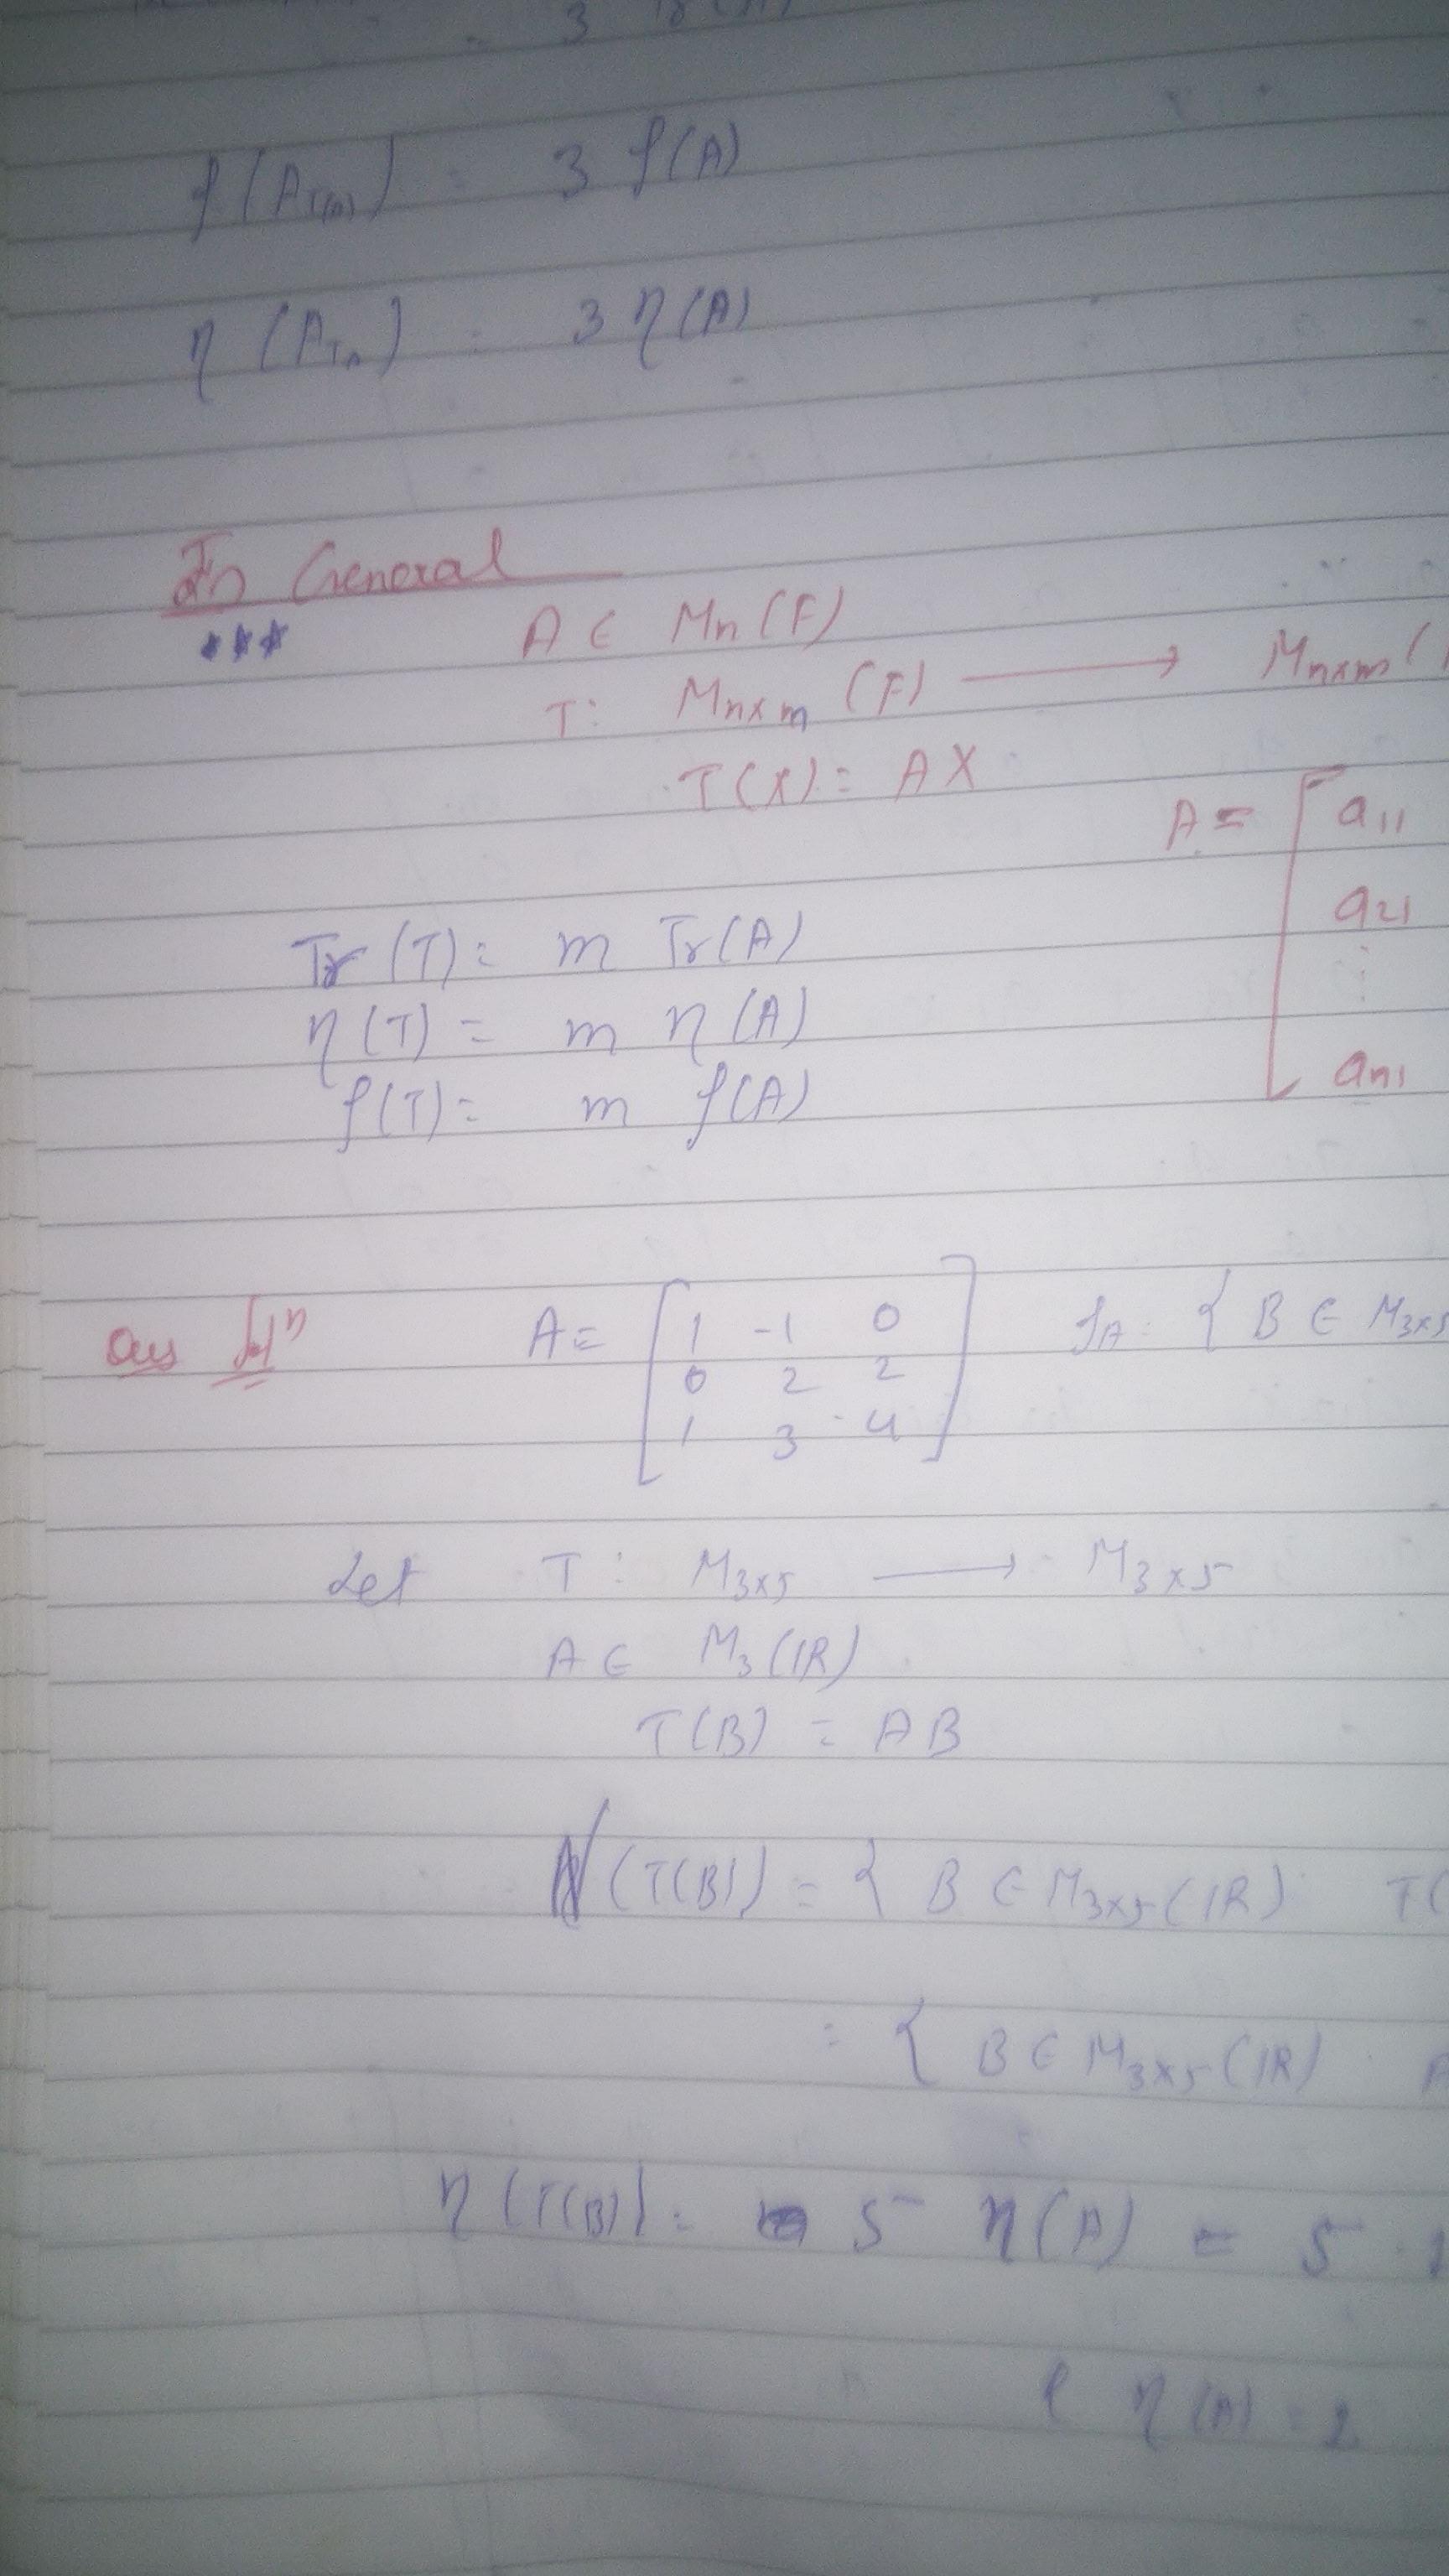 3 Tr(A)
ρ(A_T(n)) = 3 ρ(A)
η(A_Tn) = 3 η(A)
In General
*** A ∈ Mn(F)
T: Mn×m (F) ⟶ Mn×m (
T(X) = AX
A = [ a11
a21
⋮
an1
Tr(T) = m Tr(A)
η(T) = m η(A)
ρ(T) = m ρ(A)
Ques A = [ 1 -1 0 ] SA = { B ∈ M3×5
0 2 2
1 3 4
Let T : M3×5 ⟶ M3×5
A ∈ M3(IR)
T(B) = AB
N(T(B)) = { B ∈ M3×5(IR) T(
= { B ∈ M3×5(IR) A
η(T(B)) = 5 η(A) = 5
η(A) = 1